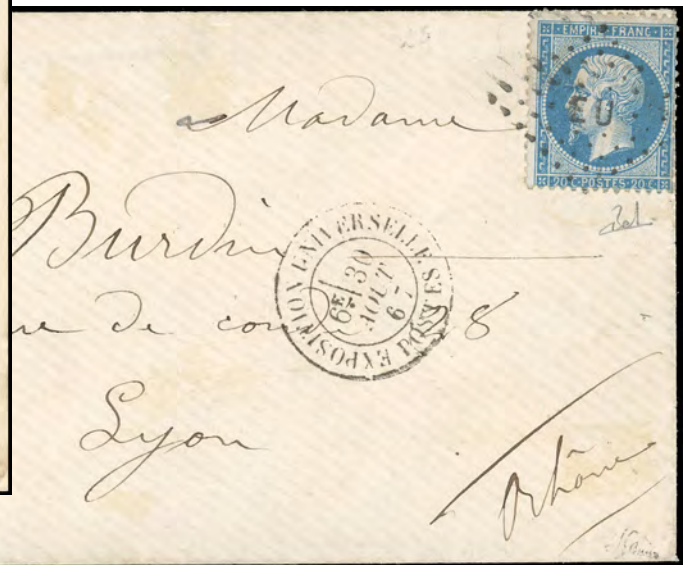 EMPIRE FRANC
EU
20 C POSTES 20 C
Madame
Burdin
EXPOSITION UNIVERSELLE. POSTES
6E
30
AOUT
67
de 38
Lyon
Rhône